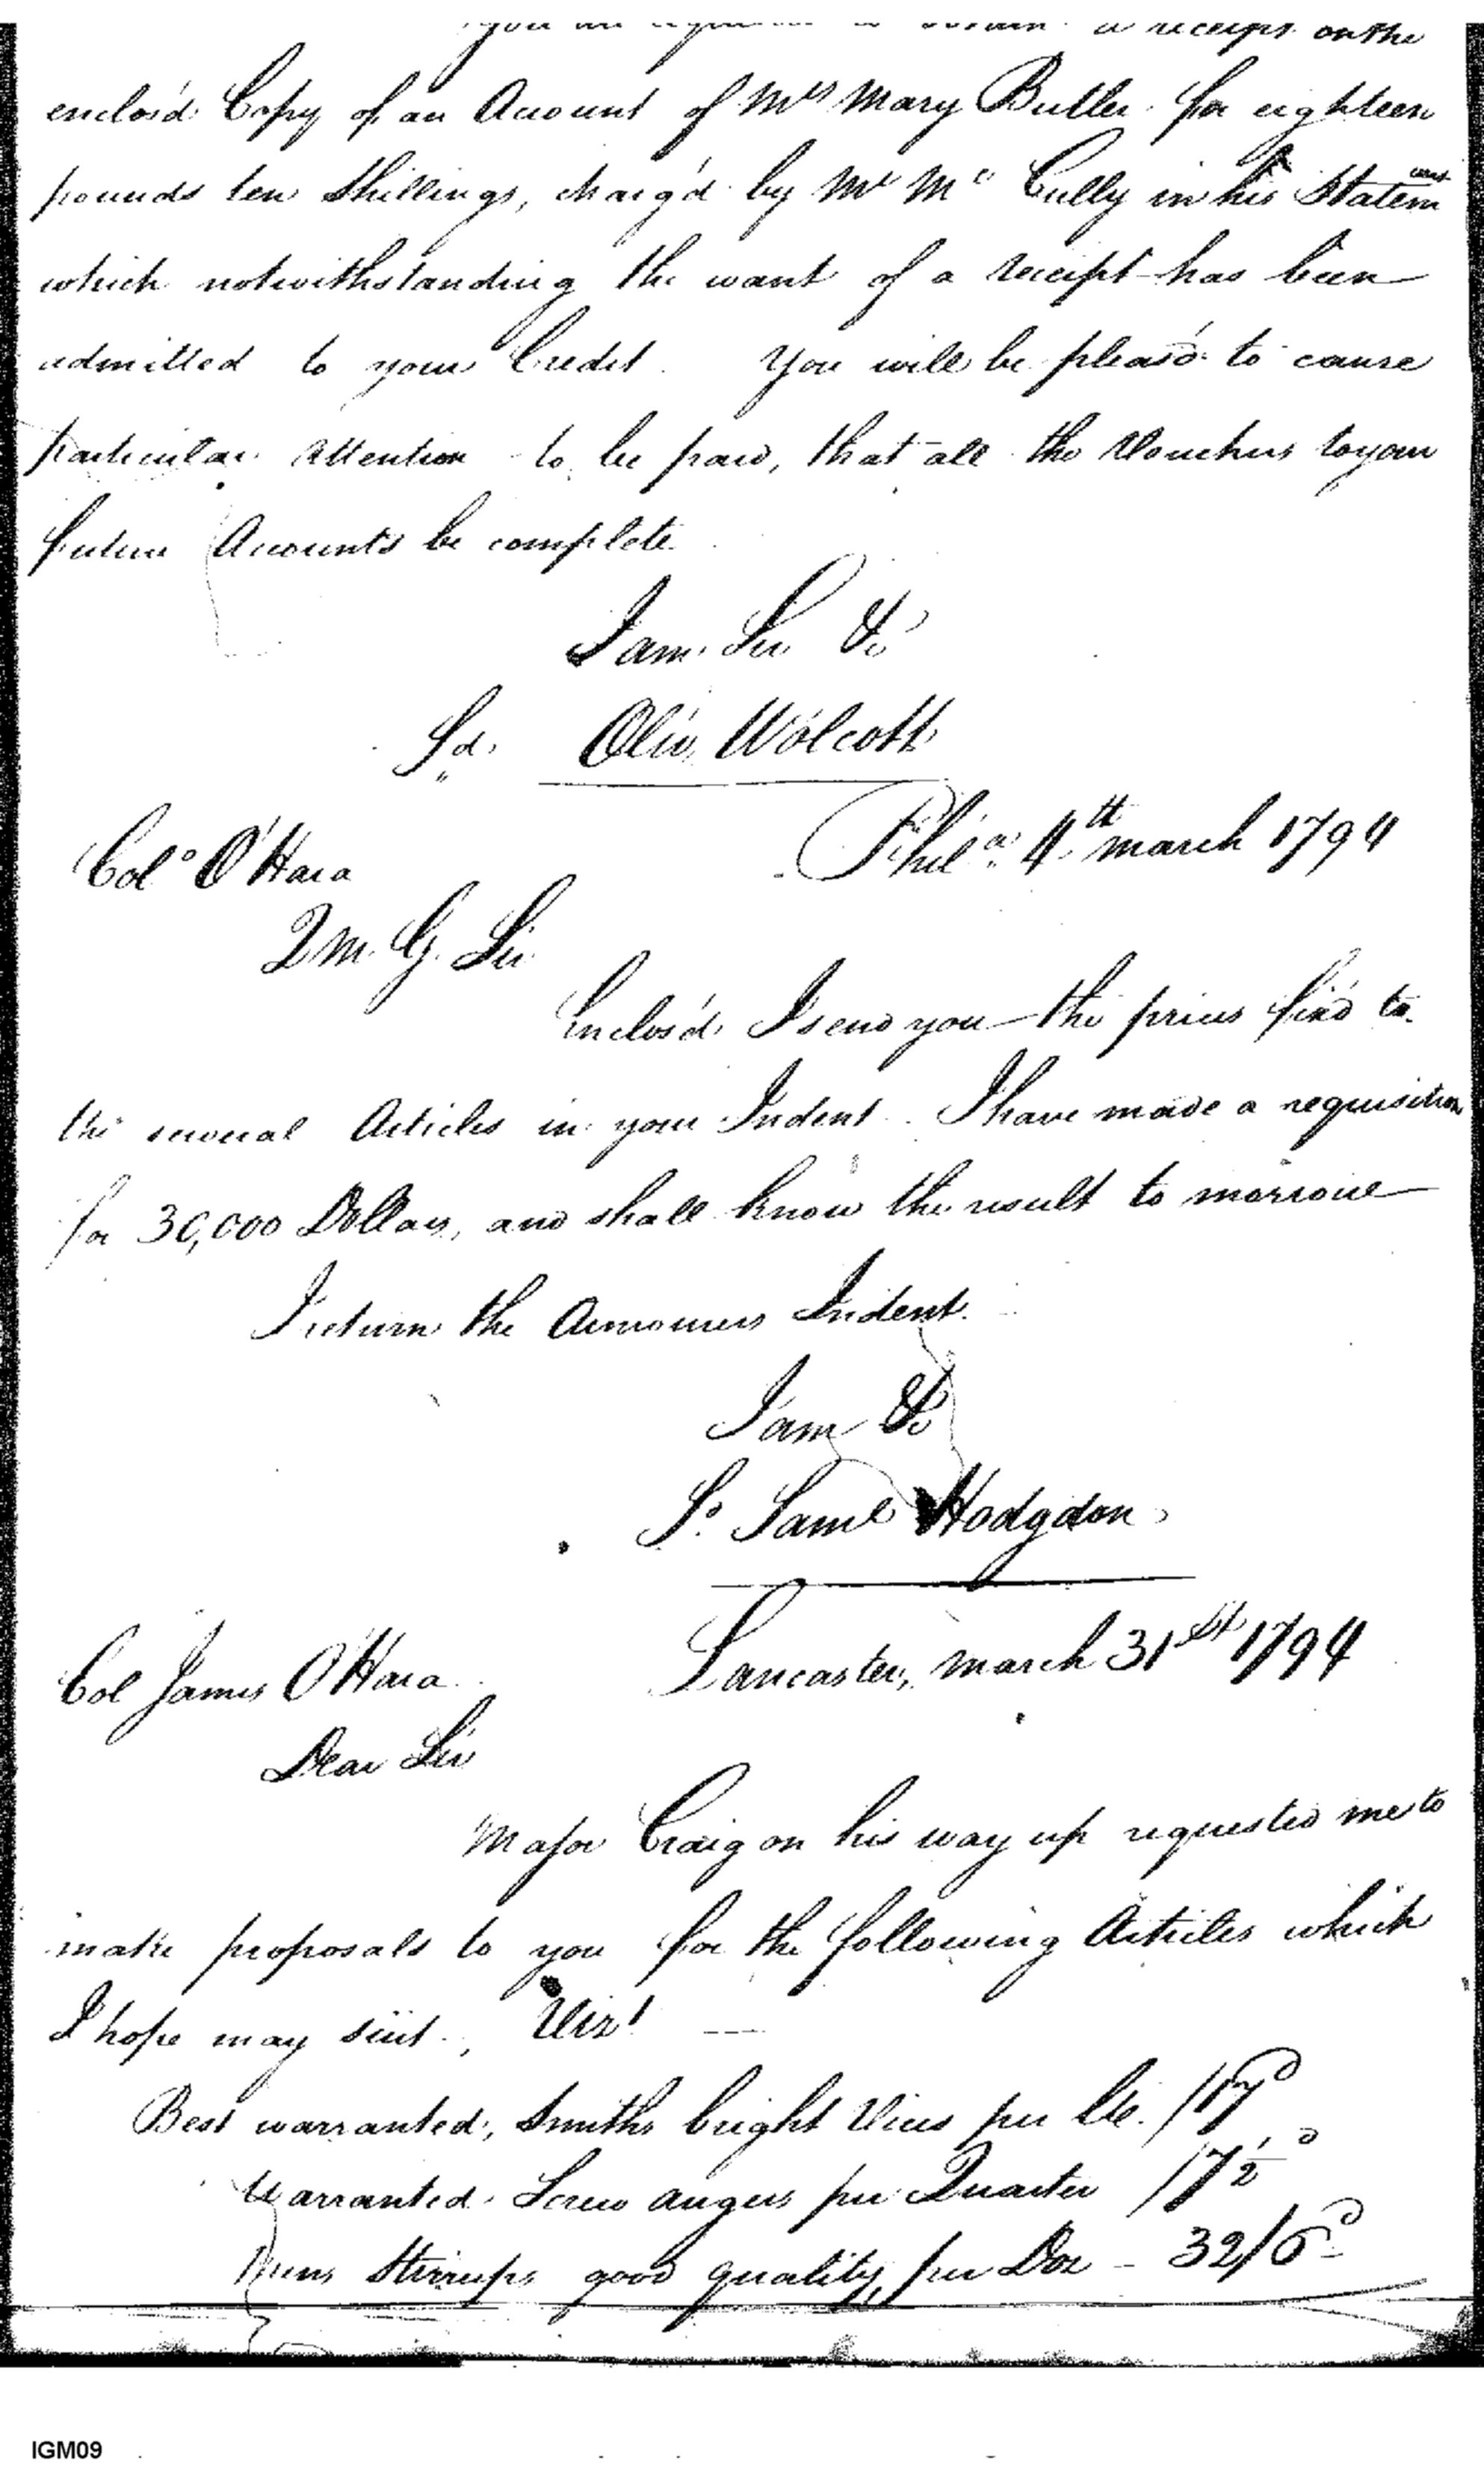 you are requested to obtain a receipt on the
enclos'd Copy of an Account of Mrs Mary Butler for eighteen
pounds ten Shillings, charg'd by Mr Mc Cully in his Statement
which notwithstanding the want of a receipt has been
admitted to your Credit. You will be pleas'd to cause
particular Attention to be paid, that all the Vouchers to your
future Accounts be complete.
I am Sir &c
Sd. Oliv. Wolcott
Phila. 4th march 1794
Colo O'Hara
Q M. G. Sir
Enclos'd I send you the prices fix'd to
the several Articles in your Indent. I have made a requisition
for 30,000 Dollars, and shall know the result to morrow
I return the Armourers Indent.
I am &c
Sd. Saml Hodgdon
Lancaster, march 31st 1794
Col James O'Hara
Dear Sir
Major Craig on his way up requested me to
make proposals to you for the following Articles which
I hope may suit., Vizt
Best warranted, Smiths bright Vices per lb. /17d
Warranted Screw augers per Quarter /7½d
Stirrups good quality, per Doz - 32/6d
IGM09